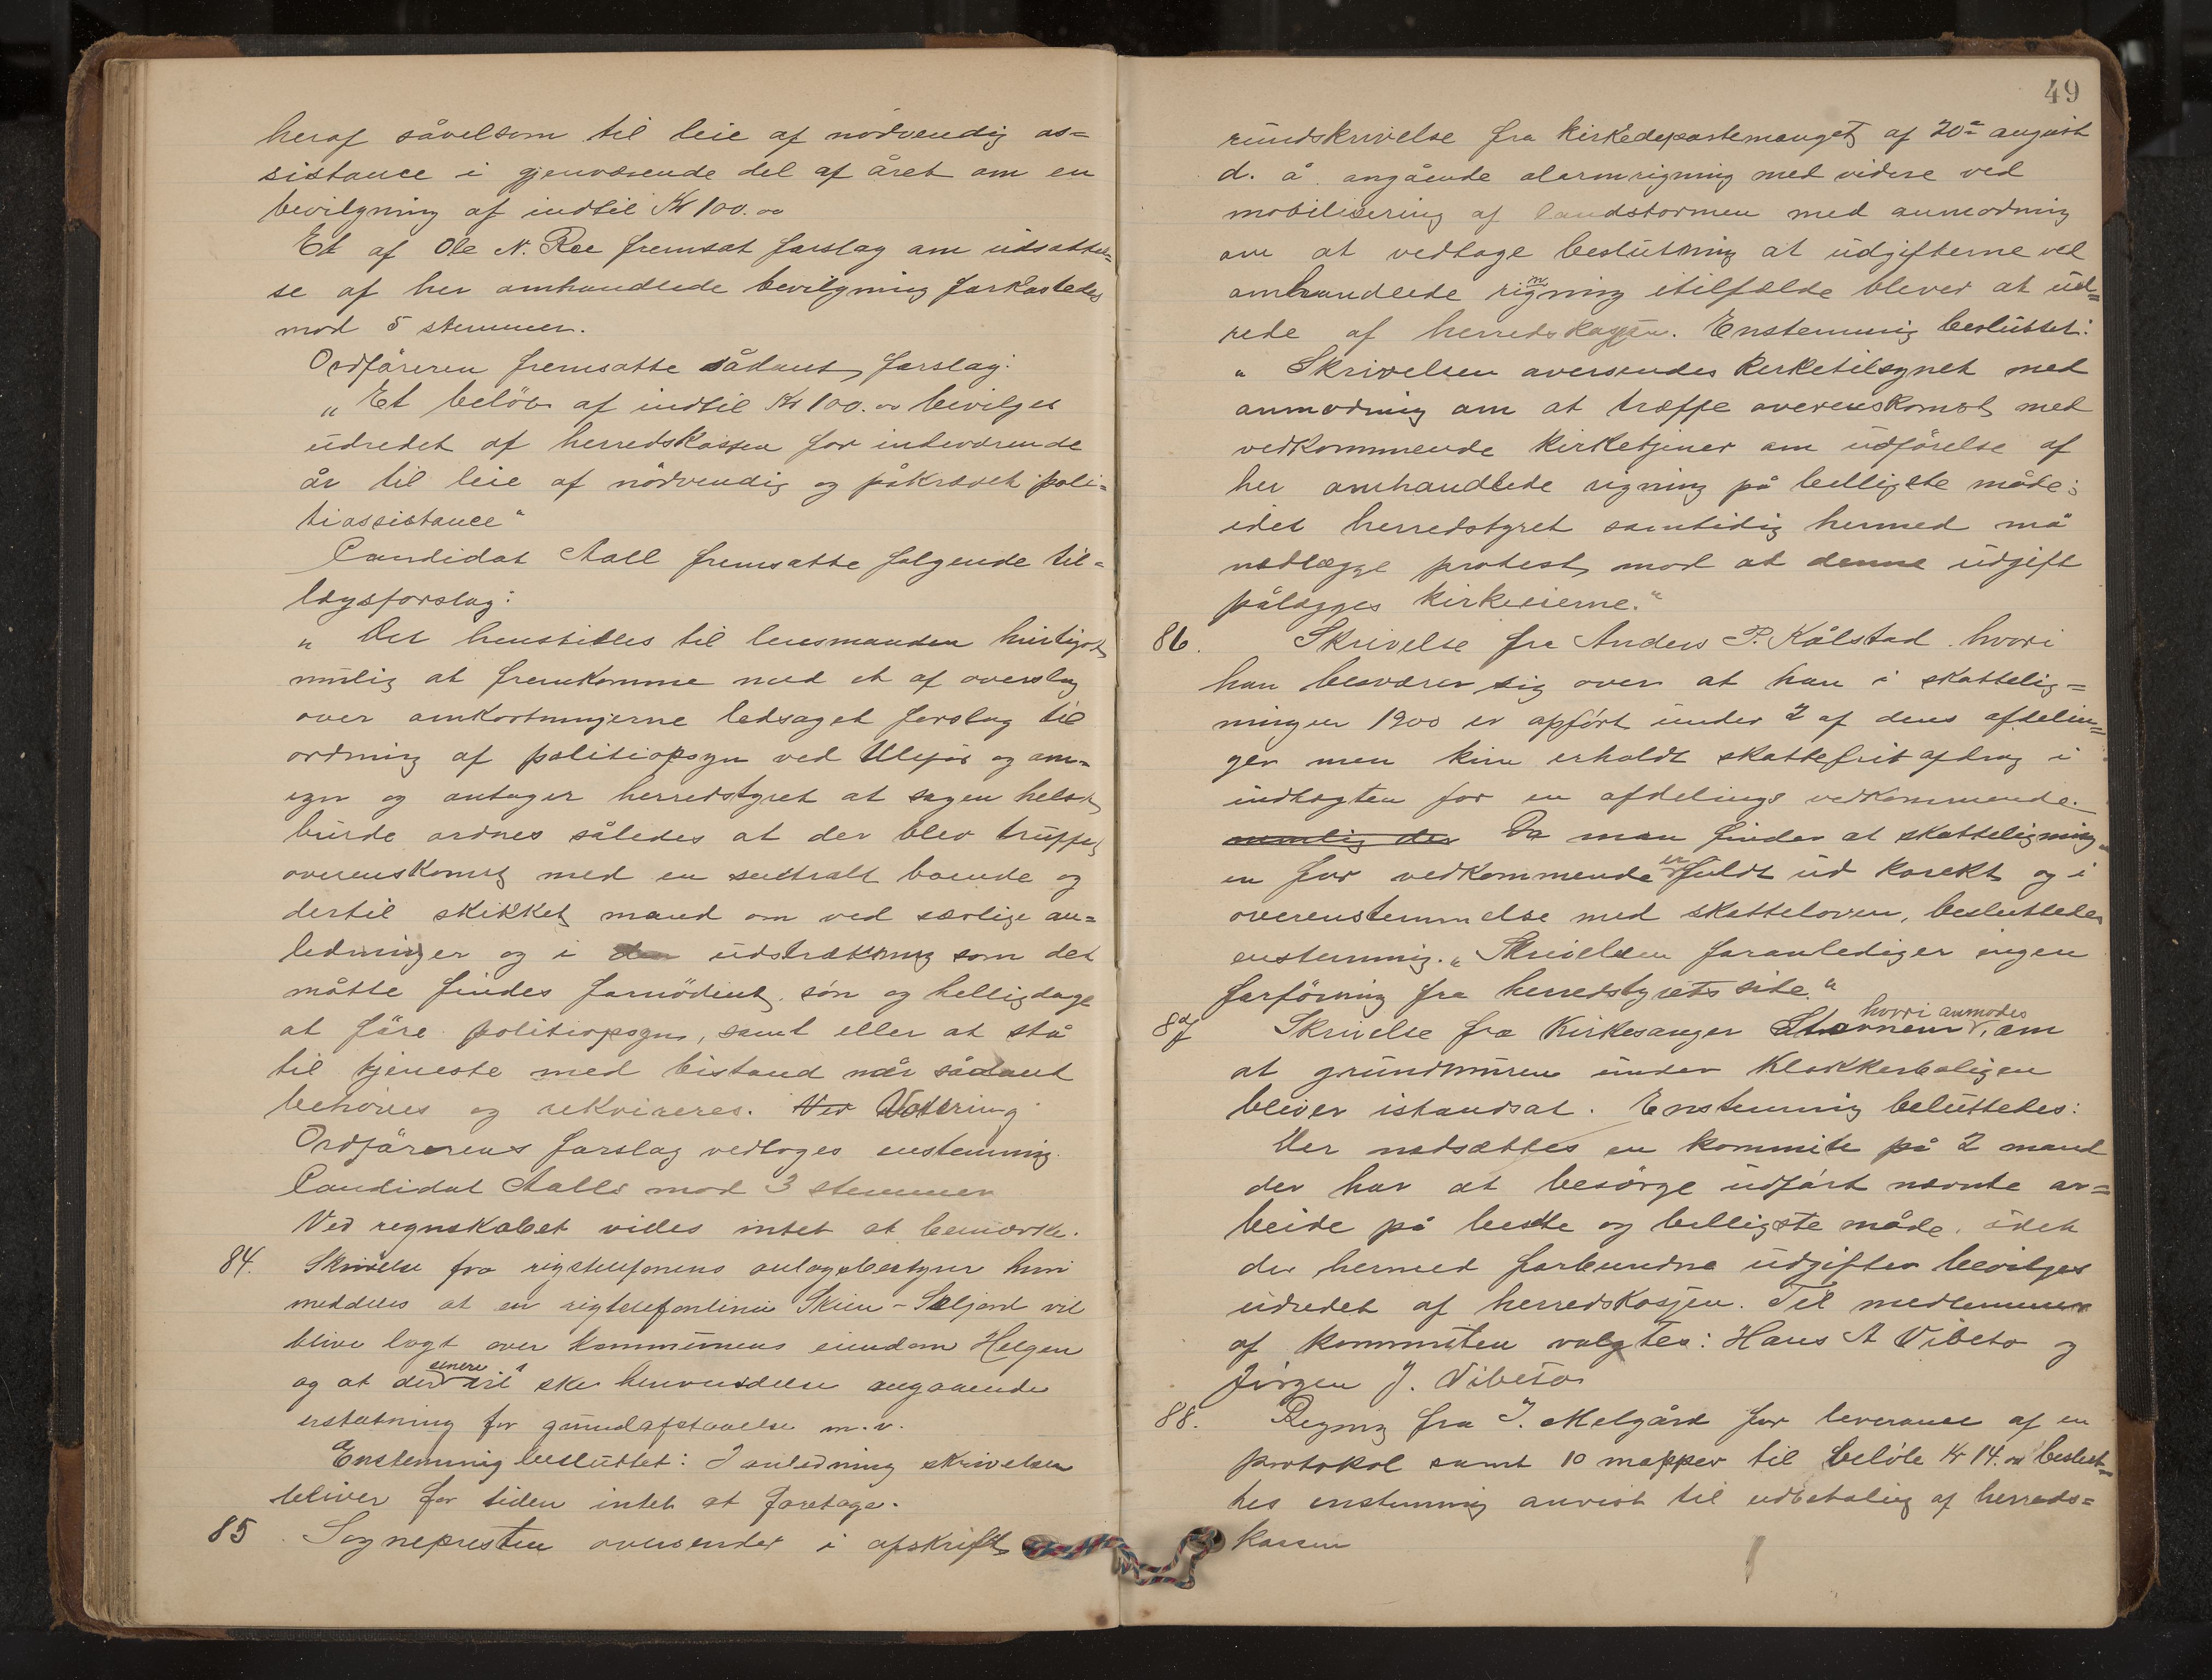 heraf såvelsom til leie af nödvendig as=
sistance i gjenværende del af året om en
bevilgning af indtil Kr 100.00
Et af Ole N. Roe fremsat forslag om udsættel=
se af her omhandlede bevilgning forkastedes
mod 5 stemmer.
Ordföreren fremsatte sådant forslag:
„Et belöb af indtil Kr 100.00 bevilges
udredet af herredskassen for indeværende
år til leie af nödvendig og påkrævet poli=
tiassistance“
Candidat Aall fremsatte følgende til=
lægsforslag:
„ Det henstilles til lensmanden hurtigst
mulig at fremkomme med et af overslag
over omkostningerne ledsaget forslag til
ordning af politiopsyn ved Ulefos og om=
egn og antager herredstyret at sagen helst
burde ordnes således at der blev truffet
overenskomst med en sentralt boende og
dertil skikket mand om ved særlige an=
ledninger og i den udstrækning som det
måtte findes fornödent, sön og helligdage
at före politiopsyn, samt eller at stå
til tjeneste med bistand når sådant
behöves og rekvireres. Ved Votering
Ordförerens forslag vedtoges enstemmig.
Candidat Aalls mod 3 stemmer
Ved regnskabet vides intet at bemærke.
84. Skrivelse fra rigstelefonens anlægsbestyrer hvori
meddeles at en rigstelefonlinie Skien - Seljord vil
blive lagt over kommunens eiendom Helgen
og at der senere vil ske henvendelse angaaende
erstatning for grundafstaaelse m.v.
Enstemmig besluttet: I anledning skrivelsen
bliver for tiden intet at foretage.
85. Sognepresten oversender i afskrift
49
rundskrivelse fra kirkedepartemenget af 20de august
d. å. angående alarmrigning med videre ved
mobilisering af landstormen med anmodning
om at vedtage beslutning at udgifterne ved
omhandlede rigning itilfælde blever at ud=
rede af herredskassen. Enstemmig besluttet:
„ Skrivelsen oversendes kirketilsynet med
anmodning om at træffe overenskomst med
vedkommende kirketjener om udförelse af
her omhandlede rigning på belligste måde;
idet herredstyret samtidig hermed må
nedlægge protest mod at denne udgift
pålægges kirkeeierne.“
86. Skrivelse fra Anders P. Kålstad hvori
han besværer sig over at han i skattelig=
ningen 1900 er opfört under 2 af dens afdelin=
ger men kun erholdt skattefrit afdrag i
indtægten for en afdelings vedkommende.
nemlig der Da man finder at skatteligning=
en for vedkommende er fuldt ud korekt og i
overenstemmelse med skatteloven, besluttedes
enstemmig. „Skrivelsen foranlediger ingen
forföining fra herredstyrets side.“
87 Skrivelse fra Kirkesanger Stavnem hvori anmodes, om
at grundmuren under Klokkerboligen
bliver istandsat. Enstemmig beluttedes:
Der nedsættes en kommite på 2 mand
der har at besörge udfört nævnte ar=
beide på bedste og belligste måde, idet
der hermed forbundne udgifter bevilges
udredet af herredskassen. Til medlemmer
af kommiteen valgtes: Hans A Vibeto og
Jörgen J. Vibeto
88. Regning fra J. Melgård for leverance af en
protokol samt 10 mapper til belöb kr 14.00 beslut=
tes enstemmig anvist til udbetaling af herreds=
kassen